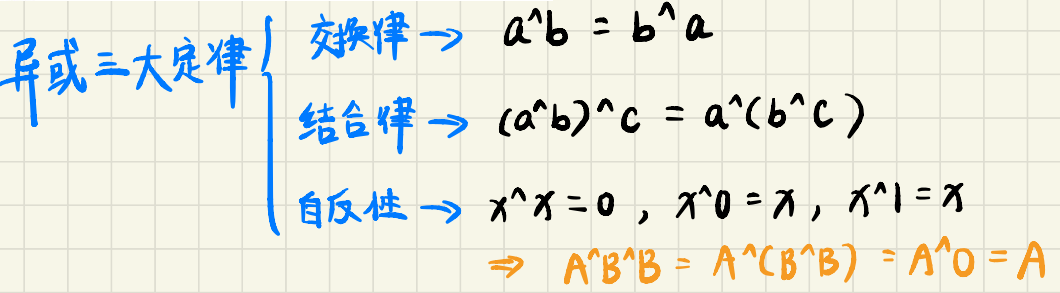 异或三大定律
交换律 → a^b = b^a
结合律 → (a^b)^c = a^(b^c)
自反性 → x^x=0, x^0=x, x^1=x
⇒ A^B^B = A^(B^B) = A^0 = A